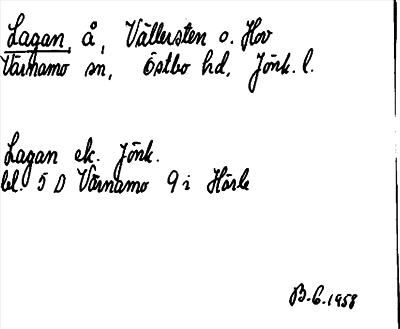 Lagan, å, Vällersten o. Hov
Värnamo sn, Östbo hd, Jönk. l.
Lagan ek. Jönk.
bl. 5 D Värnamo 9 i Hörle
B.G. 1958